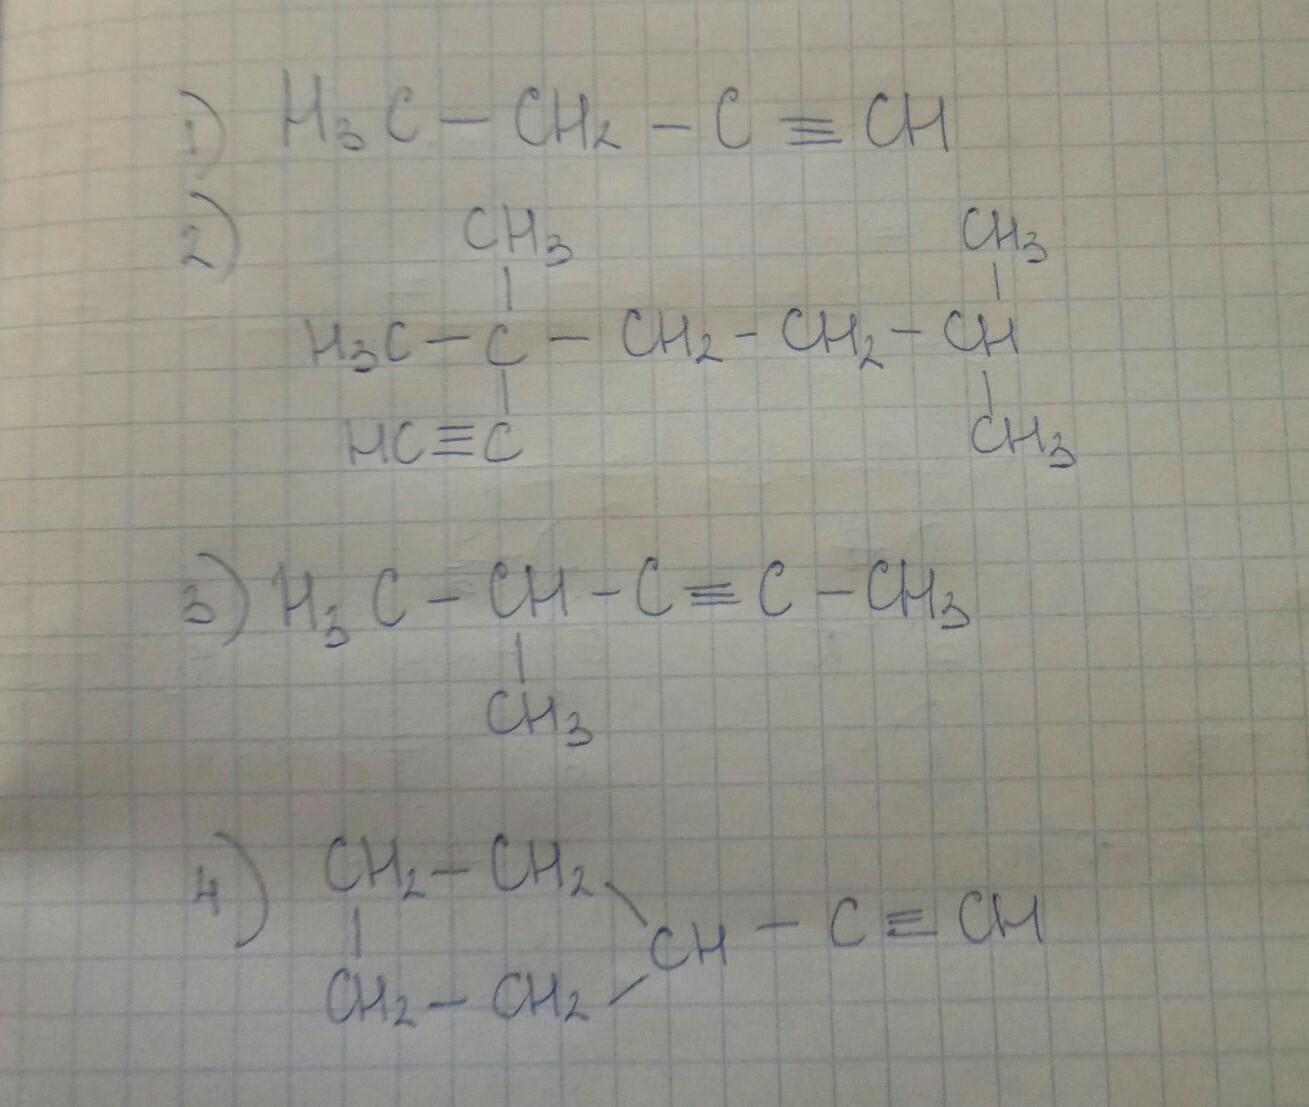 1) H₃C – CH₂ – C ≡ CH
2) CH₃ CH₃
| |
H₃C – C – CH₂ – CH₂ – CH
| |
HC≡C CH₃
3) H₃C – CH – C ≡ C – CH₃
|
CH₃
4) CH₂ – CH₂ \
| CH – C ≡ CH
CH₂ – CH₂ /